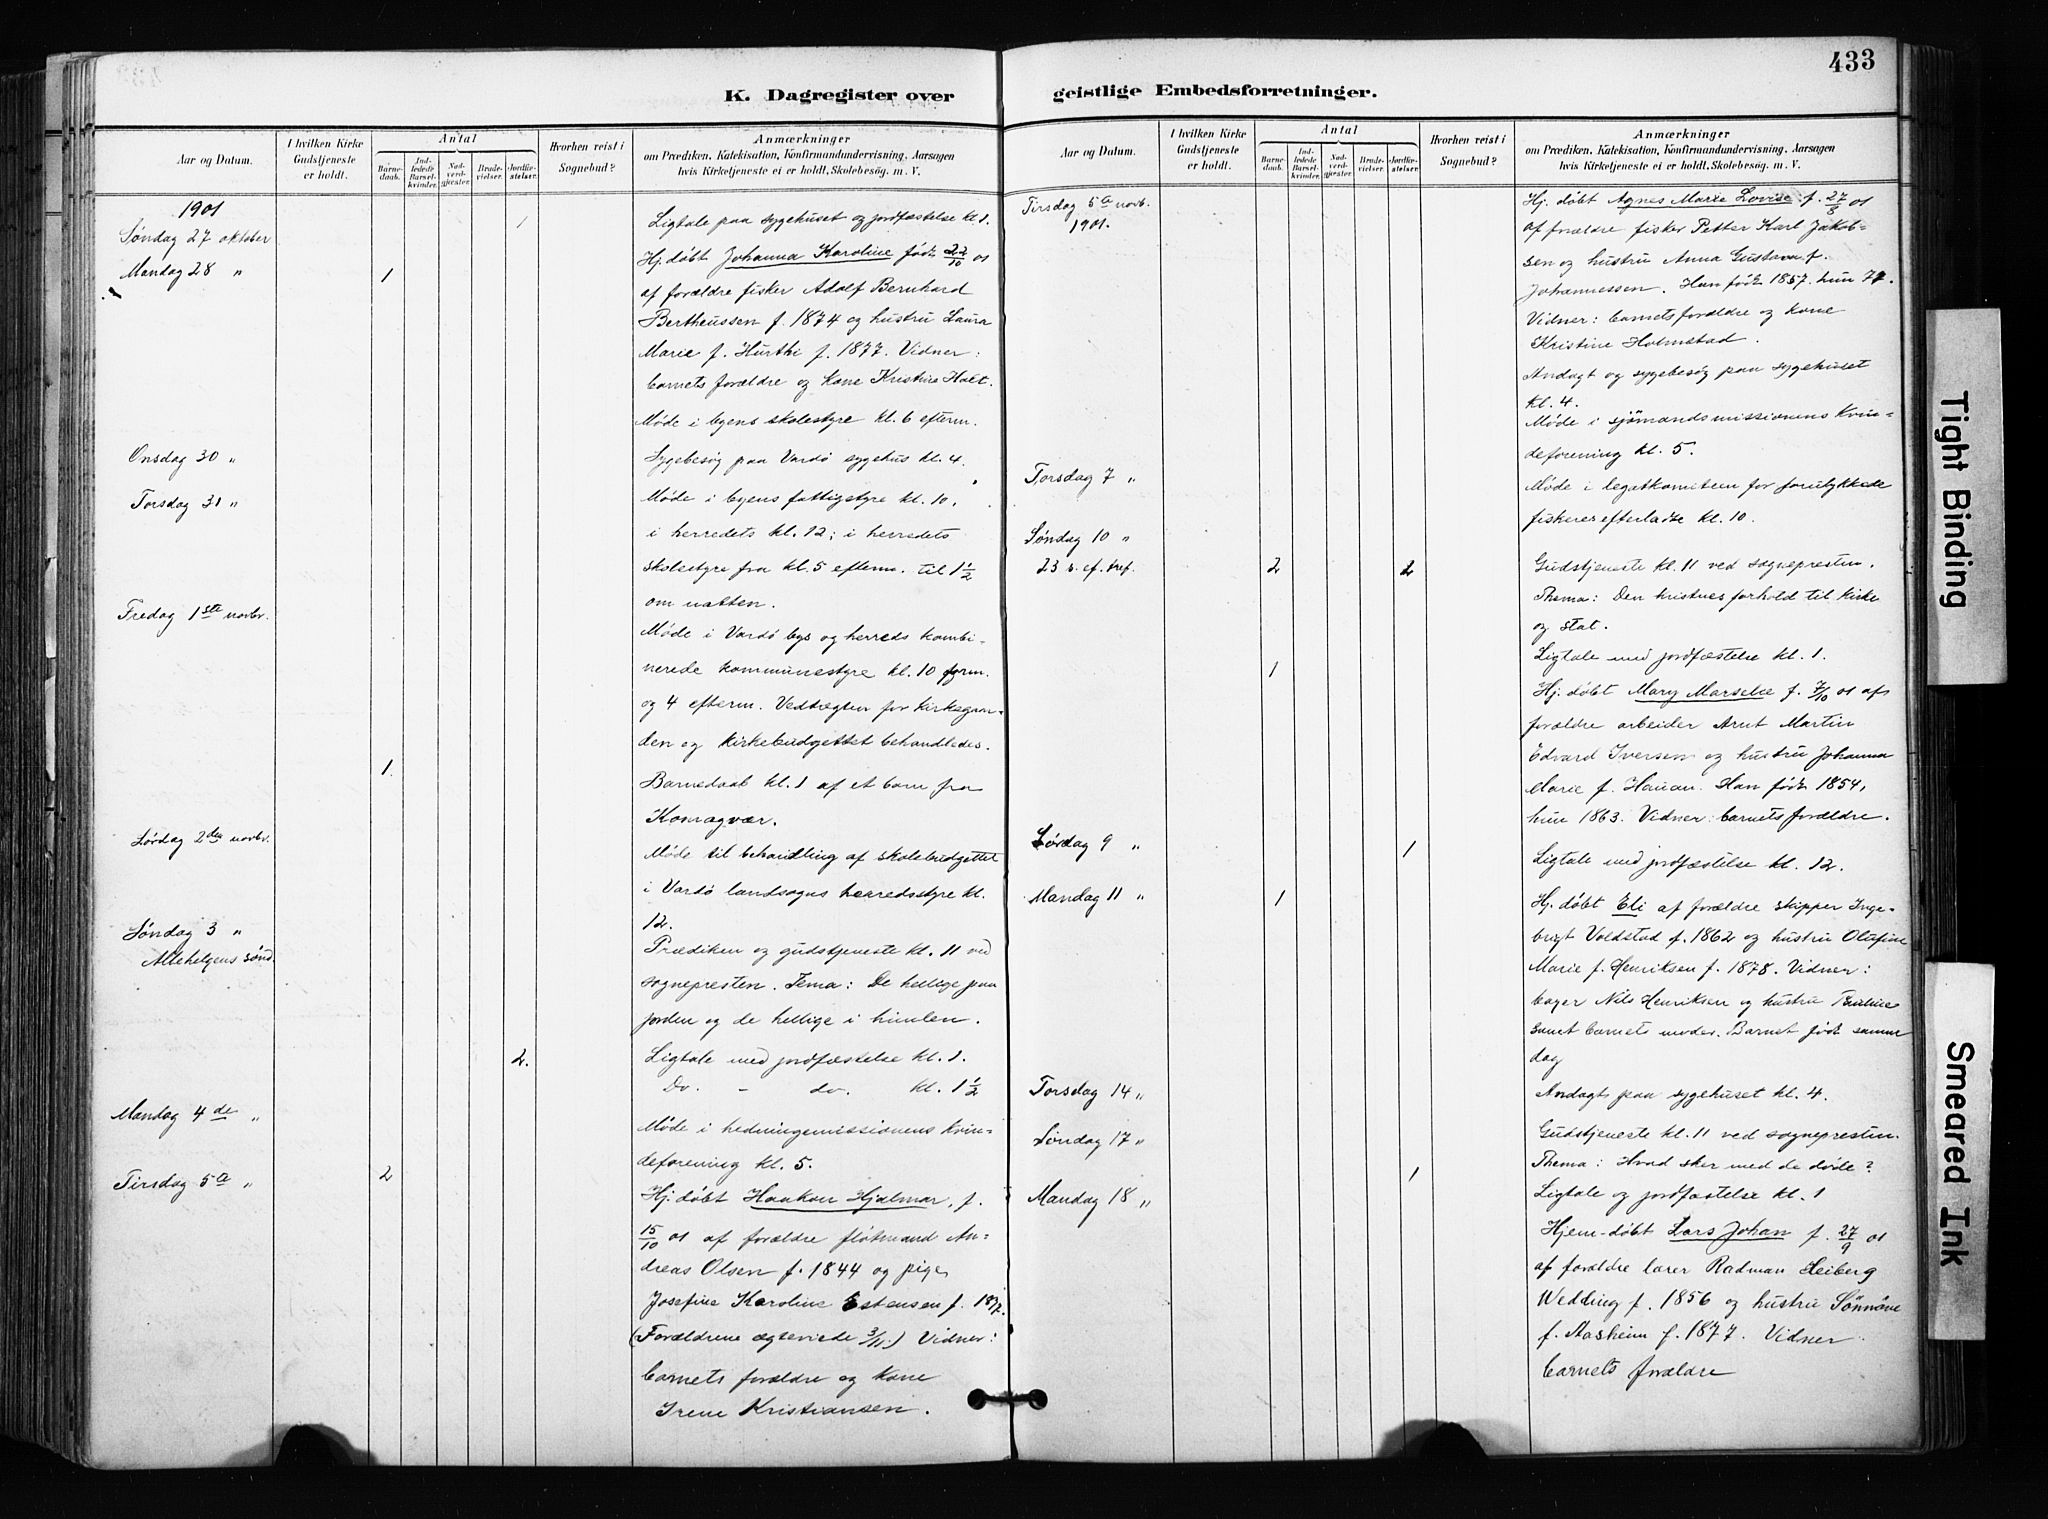 433
K. Dagregister over
geistlige Embedsforretninger.
Aar og Datum.
I hvilken Kirke Gudstjeneste er holdt.
Antal
Barne-daab.
Ind-ledede Barsel-kvinder.
Nad-verd-gjæster.
Brude-vielser.
Jordfæ-stelser.
Hvorhen reist i Sognebud?
Anmærkninger
om Prædiken, Katekisation, Konfirmandundervisning, Aarsagen
hvis Kirketjeneste ei er holdt, Skolebesøg. m. V.
1901
Søndag 27 oktober
1
Ligtale paa sygehuset og jordfæstelse kl. 1.
Mandag 28 "
1
Hj. døbt Johanna Karoline født 22/10 01
af forældre fisker Adolf Bernhard
Bertheussen f. 1874 og hustru Laura
Marie f. Hurthi f. 1877. Vidner:
barnets forældre og kone Kristine Holt.
Møde i byens skolestyre kl. 6 efterm.
Onsdag 30 "
Sygebesøg paa Vardö sygehus kl. 4.
Torsdag 31 "
Møde i byens fattigstyre kl. 10,
i herredets kl. 12; i herredets
skolestyre fra kl. 5 efterm. til 1 1/2
om natten.
Fredag 1ste novbr.
Møde i Vardö bys og herreds kombi-
nerede kommunestyre kl. 10 form.
og 4 efterm. Vedtægten for kirkegaar-
den og kirkebudgettet behandledes.
1.
Barnedaab kl. 1 af et barn fra
Komagvær.
Lørdag 2den novbr.
Møde til behandling af skolebudgettet
i Vardö landsogns herredsstyre kl.
12.
Søndag 3 "
Allehelgens sönd.
Prædiken og gudstjeneste kl. 11 ved
sognepresten. Tema: De hellige paa
jorden og de hellige i himlen.
2.
Ligtale med jordfæstelse kl. 1.
Do. - do. kl. 1 1/2
Mandag 4de "
Møde i hedningemissionens kvin-
deforening kl. 5.
Tirsdag 5te "
2
Hj. döbt Haakon Hjalmar, f.
15/10 01 af forældre flötmand An-
dreas Olsen f. 1844 og pige
Josefine Karoline Estensen f.
(Forældrene ægteviede 3/11.) Vidner:
barnets forældre og kone
Irene Kristiansen.
Aar og Datum.
I hvilken Kirke Gudstjeneste er holdt.
Antal
Barne-daab.
Ind-ledede Barsel-kvinder.
Nad-verd-gjæster.
Brude-vielser.
Jordfæ-stelser.
Hvorhen reist i Sognebud?
Anmærkninger
om Prædiken, Katekisation, Konfirmandundervisning, Aarsagen
hvis Kirketjeneste ei er holdt, Skolebesøg. m. V.
Tirsdag 5te novb.
1901.
Hj. døbt Agnes Marie Lovise f. 27/8 01
af forældre fisker Petter Karl Jakob-
sen og hustru Anna Gustava f.
Johannessen. Han født 1867. hun 74.
Vidner: barnets forældre og kone
Kristine Holmstad.
Andagt og sygebesög paa sygehuset
kl. 4.
Møde i sjömandsmissionens kvin-
deforening kl. 5.
Torsdag 7 "
Møde i legatkomiteen for forulykkede
fiskeres efterladte kl. 10.
Søndag 10 "
23 s. ef. tref.
2
2
Gudstjeneste kl. 11 ved sognepresten.
Thema: Den kristnes forhold til kirke
og stat.
Ligtale med jordfæstelse kl. 1.
1
Hj. döbt Mary Marselie f. 7/10 01 af
forældre arbeider Arnt Martin
Edvard Iversen og hustru Johanna
Marie f. Hauan. Han født 1854,
hun 1863. Vidner: barnets forældre.
Lørdag 9 "
1
Ligtale med jordfæstelse kl. 12.
Mandag 11 "
1
Hj. døbt Eli af forældre skipper Inge-
brigt Voldstad f. 1862 og hustru Olufine
Marie f. Henriksen f. 1878. Vidner:
bager Nils Henriksen og hustru
samt barnets moder. Barnet født samme
dag
Torsdag 14 "
Andagt paa sygehuset kl. 4.
Søndag 17 "
Gudstjeneste kl. 11 ved sognepresten.
Thema: Hvad sker med de døde?
1
Ligtale og jordfæstelse kl. 1
Mandag 18 "
Hjem-døbt Lars Johan f. 27/9 01
af forældre lærer Radman Seiberg
Wedding f. 1856 og hustru Sönnöve
f. Aasheim f. 1877. Vidner
barnets forældre
Tight Binding
Smeared Ink